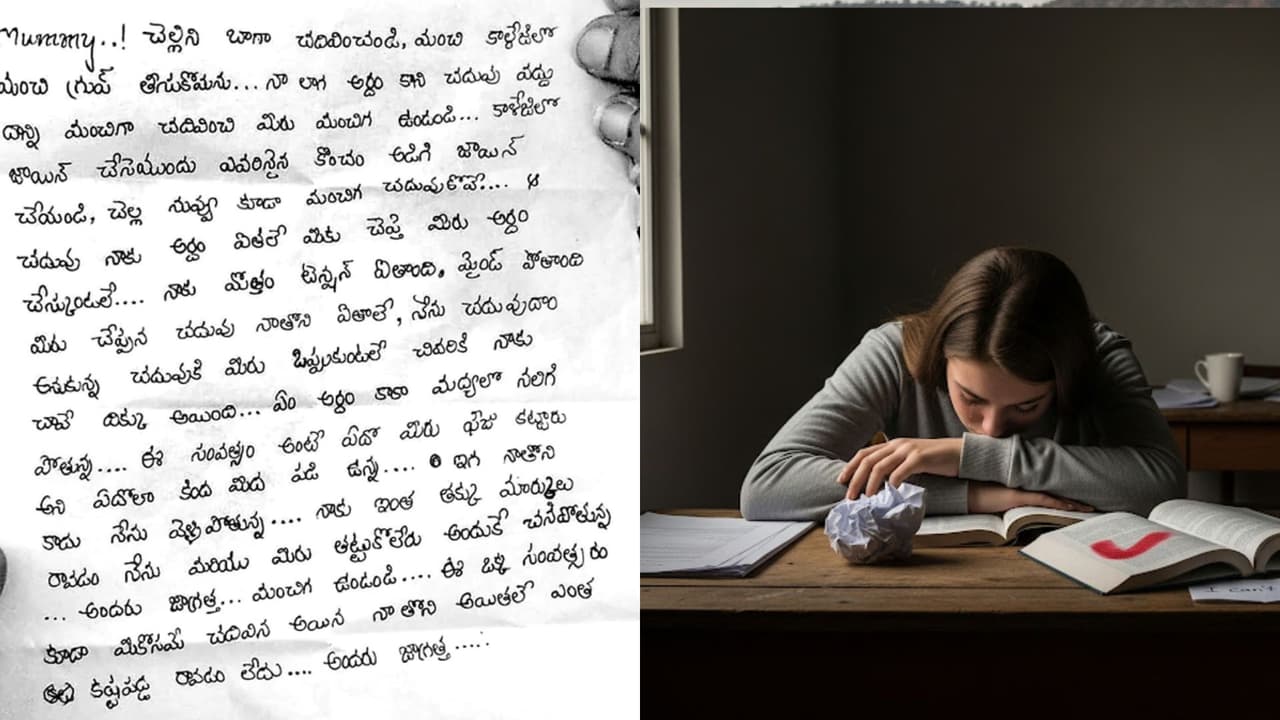 Mummy..! చెల్లిని బాగా చదివించండి, మంచి కాళ్లేజిలో
మంచి గ్రుప్ తీసుకోమను... నా లాగ అర్దం కాని చదువు వద్దు
దాన్ని మంచిగా చదివించి మిరు మంచిగ ఉండండి... కాళేజిలో
జాయిన్ చేసెముందు ఎవరినైన కొంచం అడిగి జాయిన్
చేయండి, చెల్ల నువ్వు కూడా మంచిగ చదువుకోవే.... ఆ
చదువు నాకు అర్దం ఏతలే మికు చెప్తె మిరు అర్దం
చేస్కుంటలే.... నాకు మొత్తం టెన్షన్ ఏతాంది, మైండ్ పోతాంది
మిరు చెప్పిన చదువు నాతోని ఏతాలే, నేను చదువుదాం
అనుకున్న చదువుకి మిరు ఒప్పుకుంటలే చివరికి నాకు
చావే దిక్కు అయింది... ఏం అర్దం కాకా మద్యలో నలిగి
పోతున్న.... ఈ సంవత్సం అంటే ఏదో మీరు ఫీజు కట్టారు
అని ఏదోలా కింద మిద పడి ఉన్న.... ఇగ నాతోని
కాదు నేను వెళ్లిపోతున్న.... నాకు ఇంత తక్కు మార్కులు
రావడం నేను మరియు మిరు తట్టుకోలేరు అందుకే చనిపోతున్న
... అందరు జాగ్రత్త... మంచిగ ఉండండి.... ఈ ఒక్క సంవత్సరం
కూడా మికోసమే చదివిన అయిన నా తోని అయితలే ఎంత
కష్టపడ్డ రావడం లేదు.... అందరు జాగ్రత్త.....
I can't